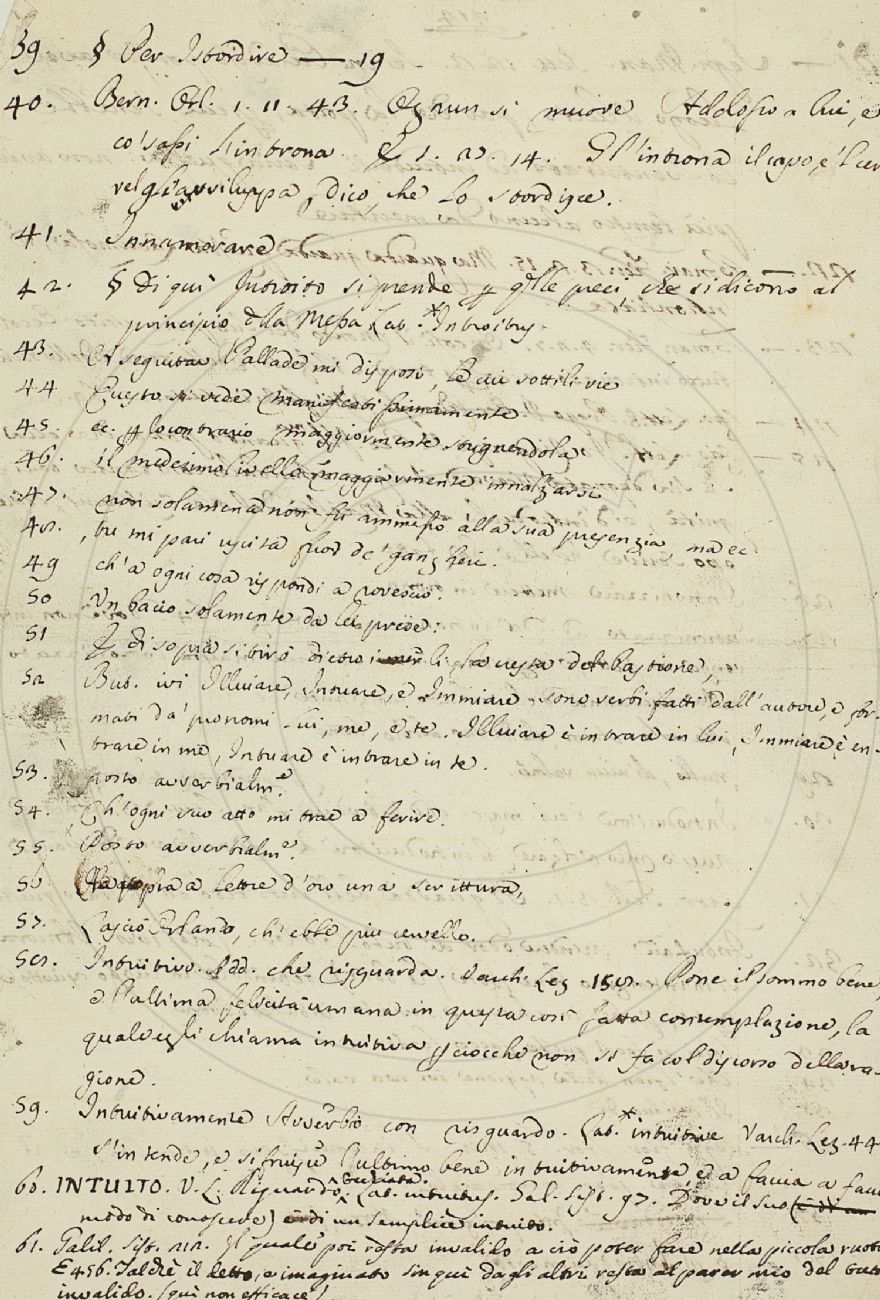 39 § Per Istordire — 19
40. Bern. Orl. 1. 11. 43. Ognun si muove Addosso a lui, e
co' sassi l'introna. E 1. 22. 14. Gl'introna il capo, e 'l cer
vel gli avviluppa, dico, che lo stordisce.
41. Innamorare
42. § Di qui Introito si prende p qlle preci, che si dicono al
principio dlla Messa Lat. *Introitus.
43. Et seguitar Pallade mi disposi, Le cui sottili vie
44 Questo si vede manifestissimamente
45. ec. p lo contrario maggiormente strignendola
46. il medesimo livello maggiormente innalzarsi
47. non solamente non fu ammesso alla sua presenzia, ma ec
48. tu mi pari uscita fuor de' gangheri.
49 ch'a ogni cosa rispondi a rovescio.
50 Un bacio solamente da lei prese:
51 E di sopra si tirò dietro li la vesta del bastione,
52 But. ivi Illuiare, Intuare, e Immiare sono verbi fatti dall'autore, e for-
mati da' pronomi lui, me, e te. Illuiare è intrare in lui, Immiare è en-
trare in me, Intuare è intrare in te.
53. posto avverbialm.e
54. Ch'ogni suo atto mi trae a ferire.
55. Posto avverbialm.e
56 a lettre d'oro una scrittura,
57. Lasciò Orlando, ch'ebbe piu cervello.
58. Intuitivo. Add. che risguarda. Varch. Lez. 158. Pone il sommo bene,
e l'ultima felicità umana in questa così fatta contemplazione, la
quale egli chiama intuitiva p ciocche non si fa col discorso della ra-
gione.
59. Intuitivamente Avverbio con risguardo. Lat.* intuitive Varch. Lez. 44
S'intende, e si fruisce l'ultimo bene intuitivamente, e a faccia a facc
60. INTUITO. V. L. Riguardo, Lat. intuitus. Gal. Sist. 97. Dove il suo
modo di conoscere) è di un semplice intuito.
61. Galil. Sist. 212. Il quale poi resta invalido a ciò poter fare nella piccola ruota
E 456. Talchè il detto, e imaginato sin qui dagli altri resta al parer mio del tutto
invalido. (qui non efficace)